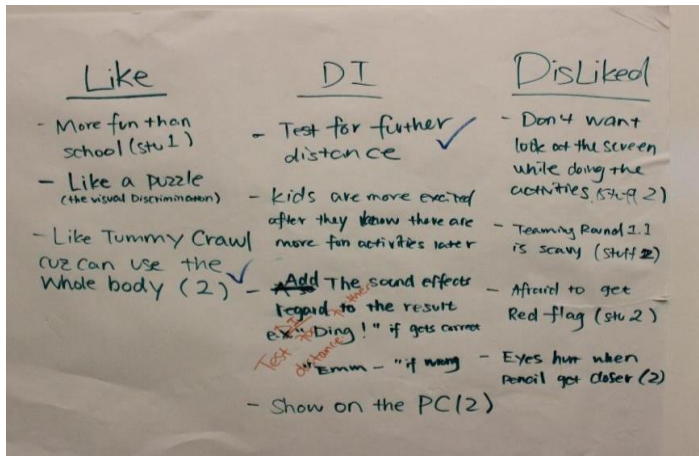 Like
- More fun than
school (stu 1)
- Like a puzzle
(the visual Discrimination)
- Like Tummy Crawl
cuz can use the
whole body (2)
DI
- Test for further
distance
- kids are more excited
after they know there are
more fun activities later
- Add The sound effects
regard to the result
ex "Ding!" if gets correct
"Emm - " if wrong
- Show on the PC (2)
DI
Test for further
distance
DisLiked
- Don't want
look at the screen
while doing the
activities (2)
- Teaming Round 1.1
is scary
- Afraid to get
Red flag (stu 2)
- Eyes hurt when
pencil get closer (2)